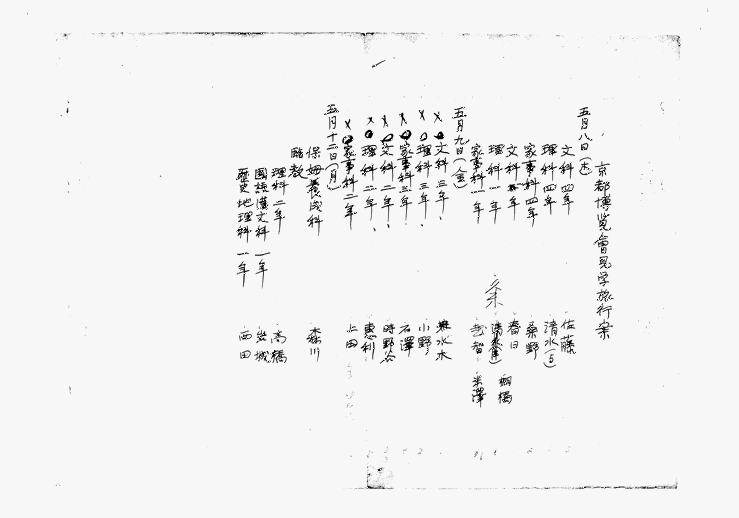 京都博覧會見学旅行案
五月八日(木)
文科四年 佐藤
理科四年 清水(ら)
家事科四年 桑野
文科一年 春日
理科一年 清水 棚橋
家事科一年 越智 米澤
五月九日(金)
×文科三年、 垂水木
×理科三年、 小野
×家事科三年、 石澤
×文科二年、 時野谷
×理科二年、 惠利
×家事科二年 上田
五月十二日(月)
保姆養成科 森川
臨教
理科二年 高橋
國語漢文科一年 岩城
歴史地理科一年 西田